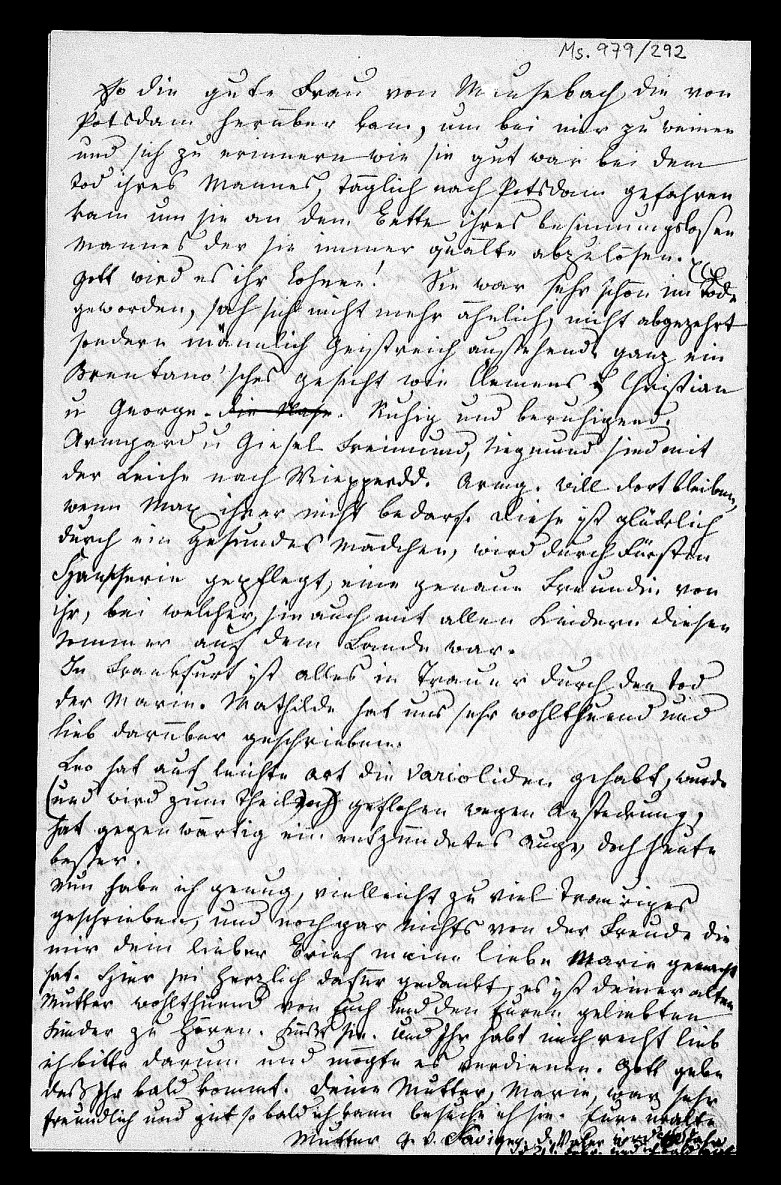 Ms. 979/292
So die gute Frau von Meusebach, die von
Potsdam herüber kam, um bei mir zu weinen
und sich zu erinnern wie sie gut war bei dem
Tod ihres Mannes, täglich nach Potsdam gefahren
kam um sie an dem Bette ihres besinnungslosen
Mannes der sie immer quälte abzulösen.
Gott wird es ihr lohnen! Sie war sehr schön im Tode
geworden, sah sich nicht mehr ähnlich, nicht abgezehrt
sondern männlich geistreich aussehend, ganz ein
Brentano'sches gesicht wie Clemens, Christian
u George. die Nase. Ruhig und beruhigend.
Armgard u Giesel Freimund, Siegmund sind mit
der Leiche nach Wiepperdd. Armg. will dort bleiben,
wenn Max ihrer nicht bedarf. Diese ist glücklich
durch ein gesundes Mädchen, wird durch Fürstin
gepflegt, eine genaue Freundin von
ihr, bei welcher sie auch mit allen Kindern diesen
Sommer auf dem Lande war.
In Frankfurt ist alles in Trauer durch den Tod
der Marie. Mathilde hat uns sehr wohlthuend und
lieb darüber geschrieben.
Leo hat auf leichte Art die Varioliden gehabt, wurde
(und wird zum Theil noch) geflohen wegen Ansteckung,
hat gegenwärtig ein entzündetes Auge, doch heute
besser.
Nun habe ich genug, vielleicht zu viel Trauriges
geschrieben, und noch gar nichts von der Freude die
mir dein lieber Brief meine liebe Marie gemacht
hat. Hier sei herzlich dafür gedankt, es ist deiner alten
Mutter wohlthuend von Euch und den Euren geliebten
Kinder zu hören. Küsse sie. Und Ihr habt mich recht lieb
ich bitte darum und mögte es verdienen. Gott gebe
daß Ihr bald kommt. Deine Mutter, Marie, war sehr
freundlich und gut so bald ich kann besuche ich sie. Eure uralte
Mutter G. v. Savigny. d. Vater